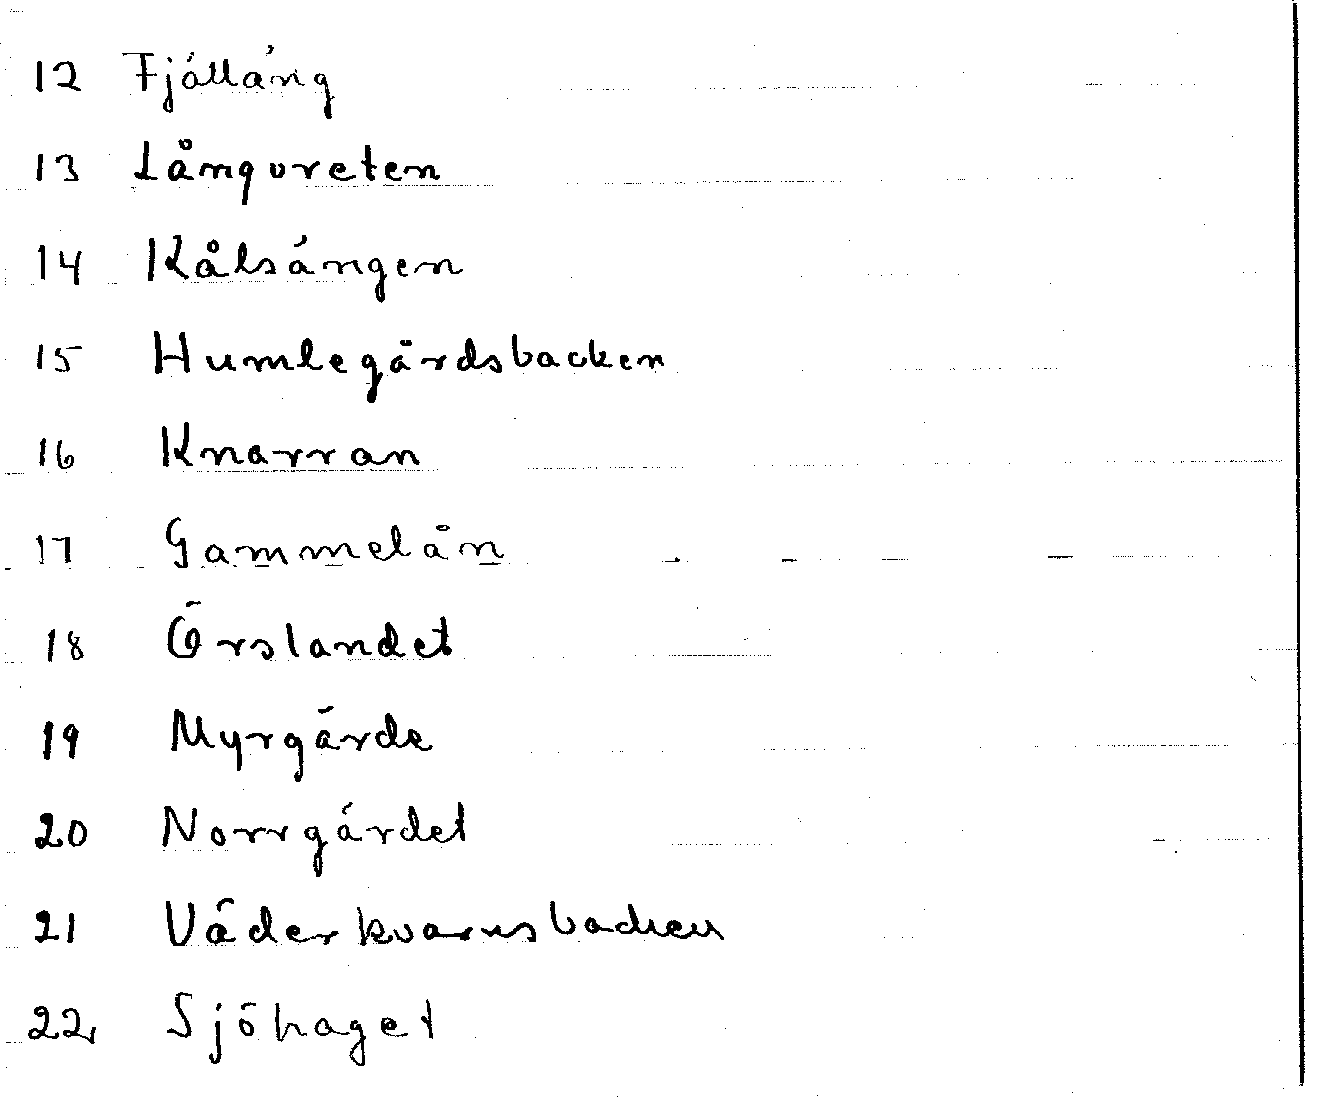 12 Fjälläng
13 Långvreten
14 Kålsängen
15 Humlegårdsbacken
16 Knarran
17 Gammelån
18 Örslandet
19 Myrgärde
20 Norrgärdet
21 Väderkvarnsbacken
22, Sjöhaget